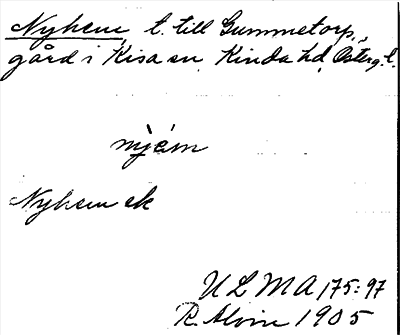 Nyhem, t. till Gummetorp,
gård i Kisa sn, Kinda hd, Österg. l.
njém
Nyhem ek
ULMA 175:97
R. Alvin 1905